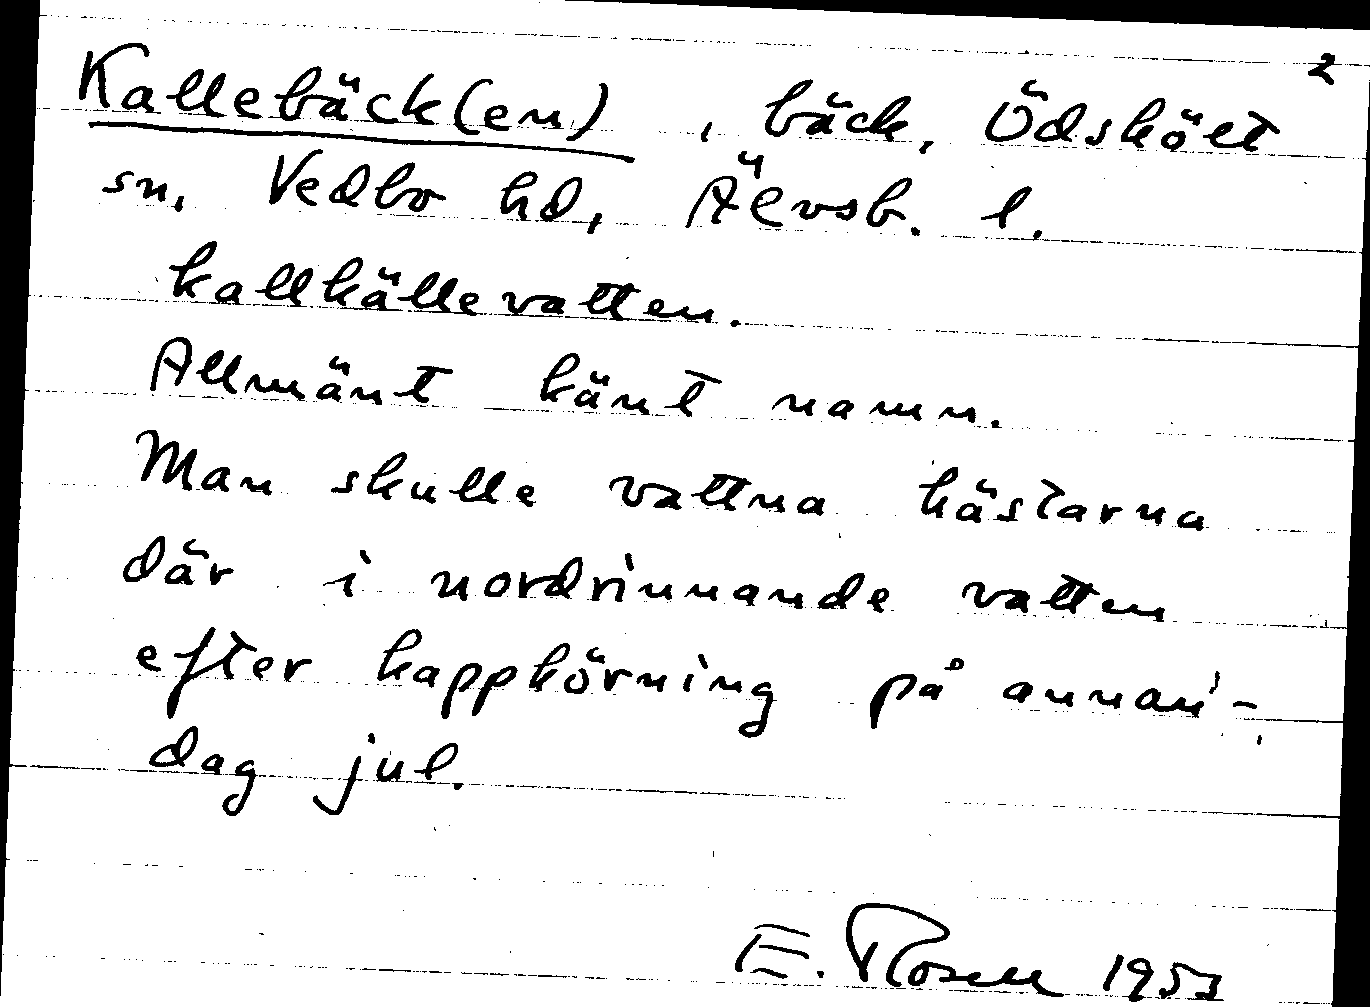 2
Kallebäck(en), bäck, Ödskölt
sn, Vedbo hd, Älvsb. l.
kallkällevatten.
Allmänt känt namn.
Man skulle vattna hästarna
där i nordrinnande vatten
efter kappkörning på annan-
dag jul.
E. Rosell 1953